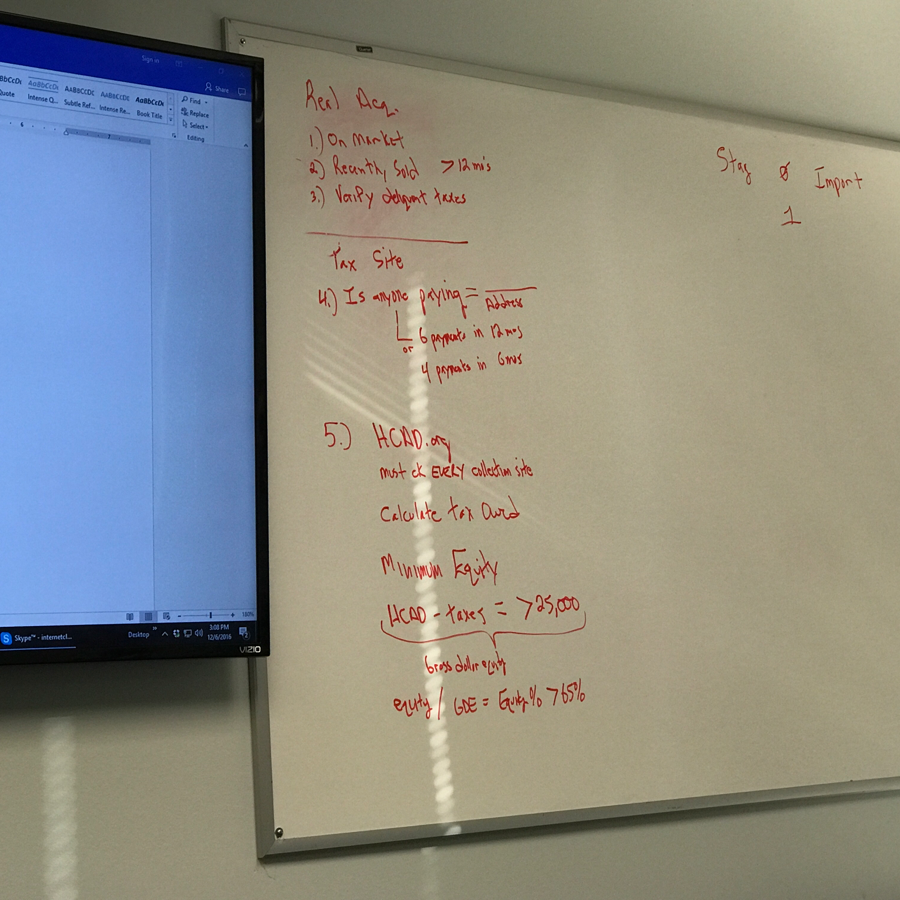 Sign in
Share
AaBbCcDc AaBbCcDc AABBCCDC AABBCCDC AaBbCcDc
Quote Intense Q... Subtle Ref... Intense Re... Book Title
Find
Replace
Select
Editing
6 7
180%
Skype™ - internetcl...
Desktop
3:08 PM
12/6/2016
VIZIO
Real Acq.
1.) On Market
2.) Recently Sold >12 mo's
3.) Verify deliquent taxes
Tax Site
4.) Is anyone paying =
Address
6 payments in 12 mos
or
4 payments in 6 mos
5.) HCAD.org
must ck EVERY collection site
Calculate tax Owed
Minimum Equity
HCAD - taxes = >25,000
Gross dollar equity
equity / GDE = Equity% >65%
Stag 0 Import
1